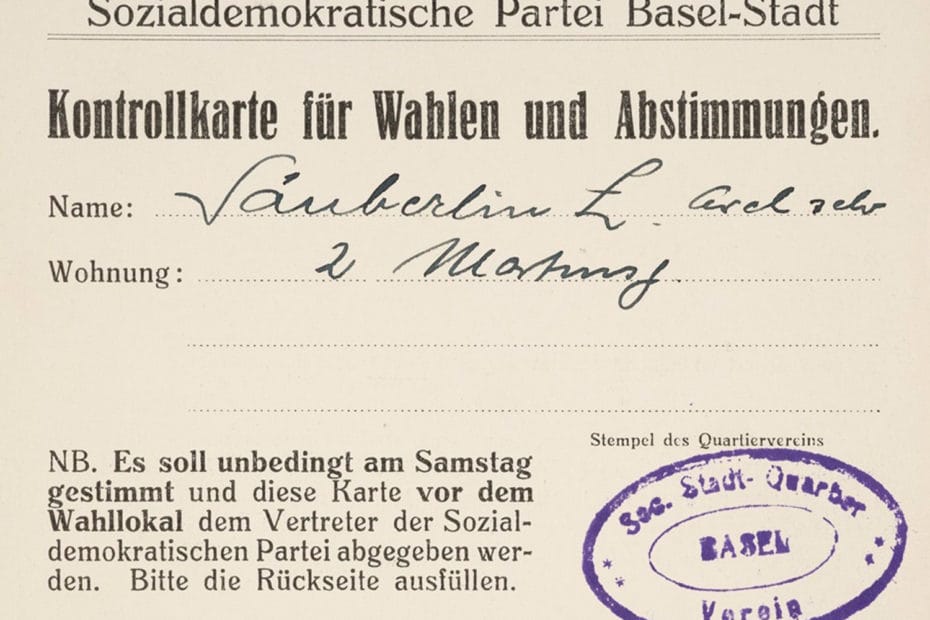 Sozialdemokratische Partei Basel-Stadt
Kontrollkarte für Wahlen und Abstimmungen.
Name: Säuberlin E.
Wohnung: 2
Stempel des Quartiervereins
NB. Es soll unbedingt am Samstag
gestimmt und diese Karte vor dem
Wahllokal dem Vertreter der Sozial-
demokratischen Partei abgegeben wer-
den. Bitte die Rückseite ausfüllen.
Soc. Stadt-Quartier
BASEL
Verein